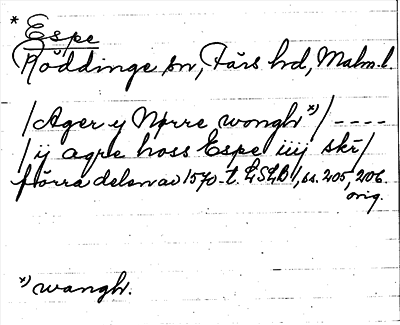 * Espe
Röddinge sn, Färs hd, Malm.l.
/Ager y Nørre wongh *)/ ----
/ij agre hoss Espe iiij skr/
förra delen av 1570-t. LSLB 1, s. 205, 206.
orig.
*) wangh.